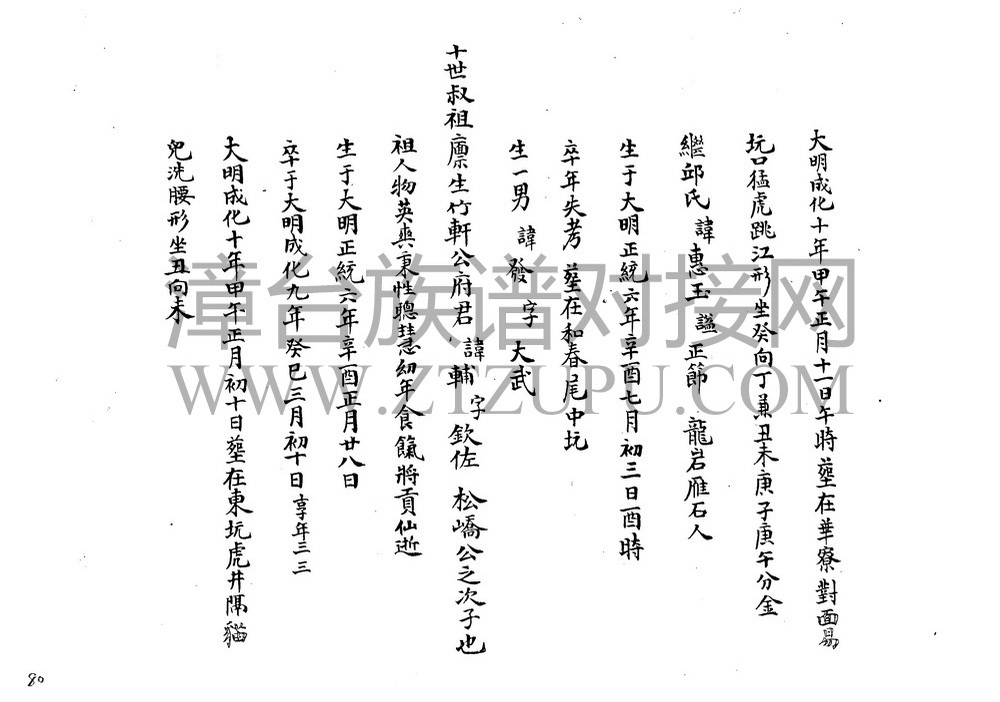 大明成化十年甲午正月十一日午時塟在華寮對面易
坑口猛虎跳江形坐癸向丁兼丑未庚子庚午分金
繼邱氏 諱惠玉 諡正節 龍岩雁石人
生于大明正統六年辛酉七月初三日酉時
卒年失考 塟在和春尾中坑
生一男 諱發 字大武
十世叔祖廪生竹軒公府君 諱輔 字欽佐 松嶠公之次子也
祖人物英爽秉性聰慧幼年食餼將貢仙逝
生于大明正統六年辛酉正月廿八日
卒于大明成化九年癸巳三月初十日享年三三
大明成化十年甲午正月初十日塟在東坑虎井隔貓
兒洗腰形坐丑向未
漳台族谱对接网
WWW.ZTZUPU.COM
80